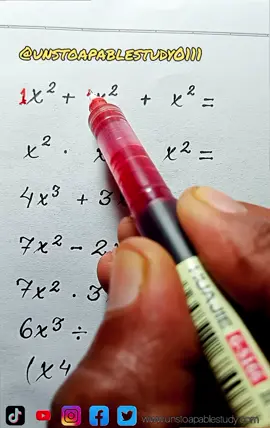 @UNSTOAPABLESTUDY0111
1x² + x² + x² =
x² · x² =
4x³ + 3
7x² - 2
7x² · 3
6x³ ÷
(x4
HUAJIE
www.unstoapablestudy.com